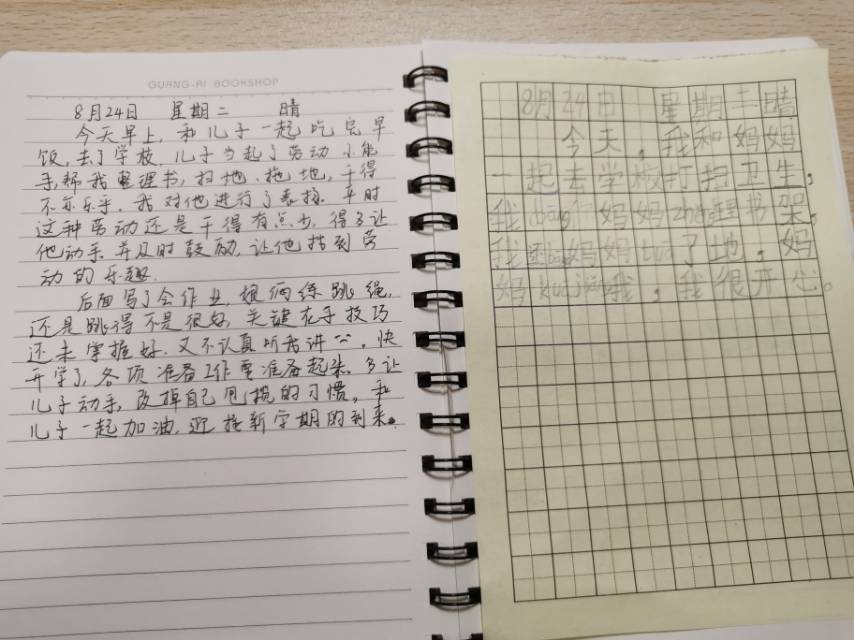 GUANG-AI BOOKSHOP
8月24日 星期二 晴
今天早上,和儿子一起吃完早
饭,去了学校,儿子当起了劳动小能
手,帮我整理书,扫地、拖地,干得
不亦乐乎。我对他进行了表扬。平时
这种劳动还是干得有点少,得多让
他动手,并及时鼓励,让他找到劳
动的乐趣。
后面写了会作业,娘俩练跳绳,
还是跳得不是很好,关键在手技巧
还未掌握好,又不认真听我讲
快
开学了,各项准备工作要准备起来。多让
儿子动手,改掉自己包揽的习惯。和
儿子一起加油,迎接新学期的到来。
8月24日 星期二晴
今天,我和妈妈
一起去学校打扫卫生,
我bāng妈妈zhěng理书架,
我 妈妈tuō了地,妈
妈kuā jiǎng我,我很开心。